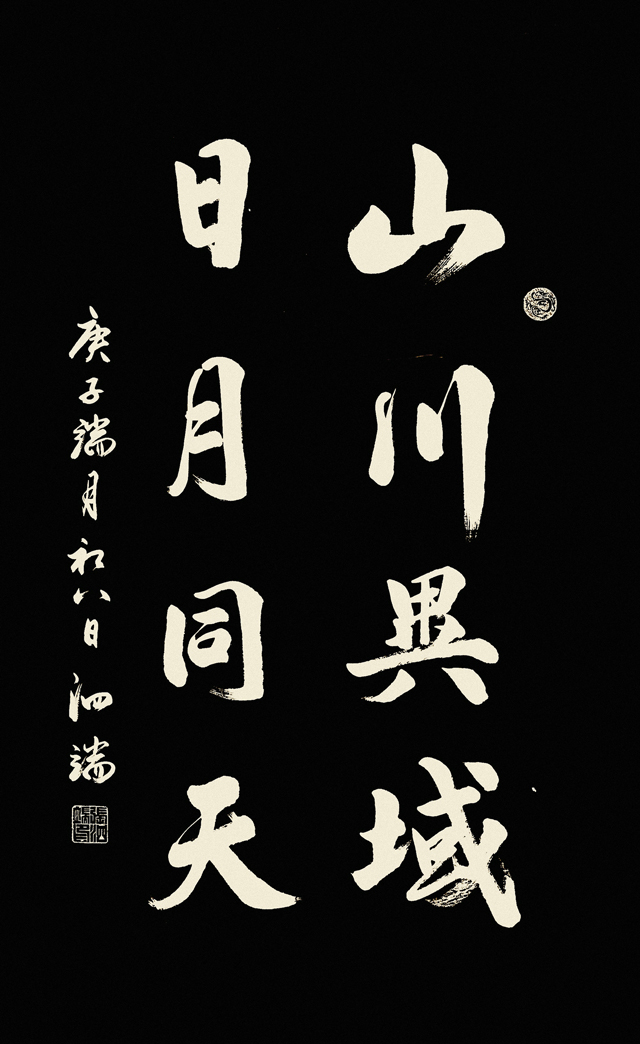 山川異域
日月同天
庚子端月初八日泗端